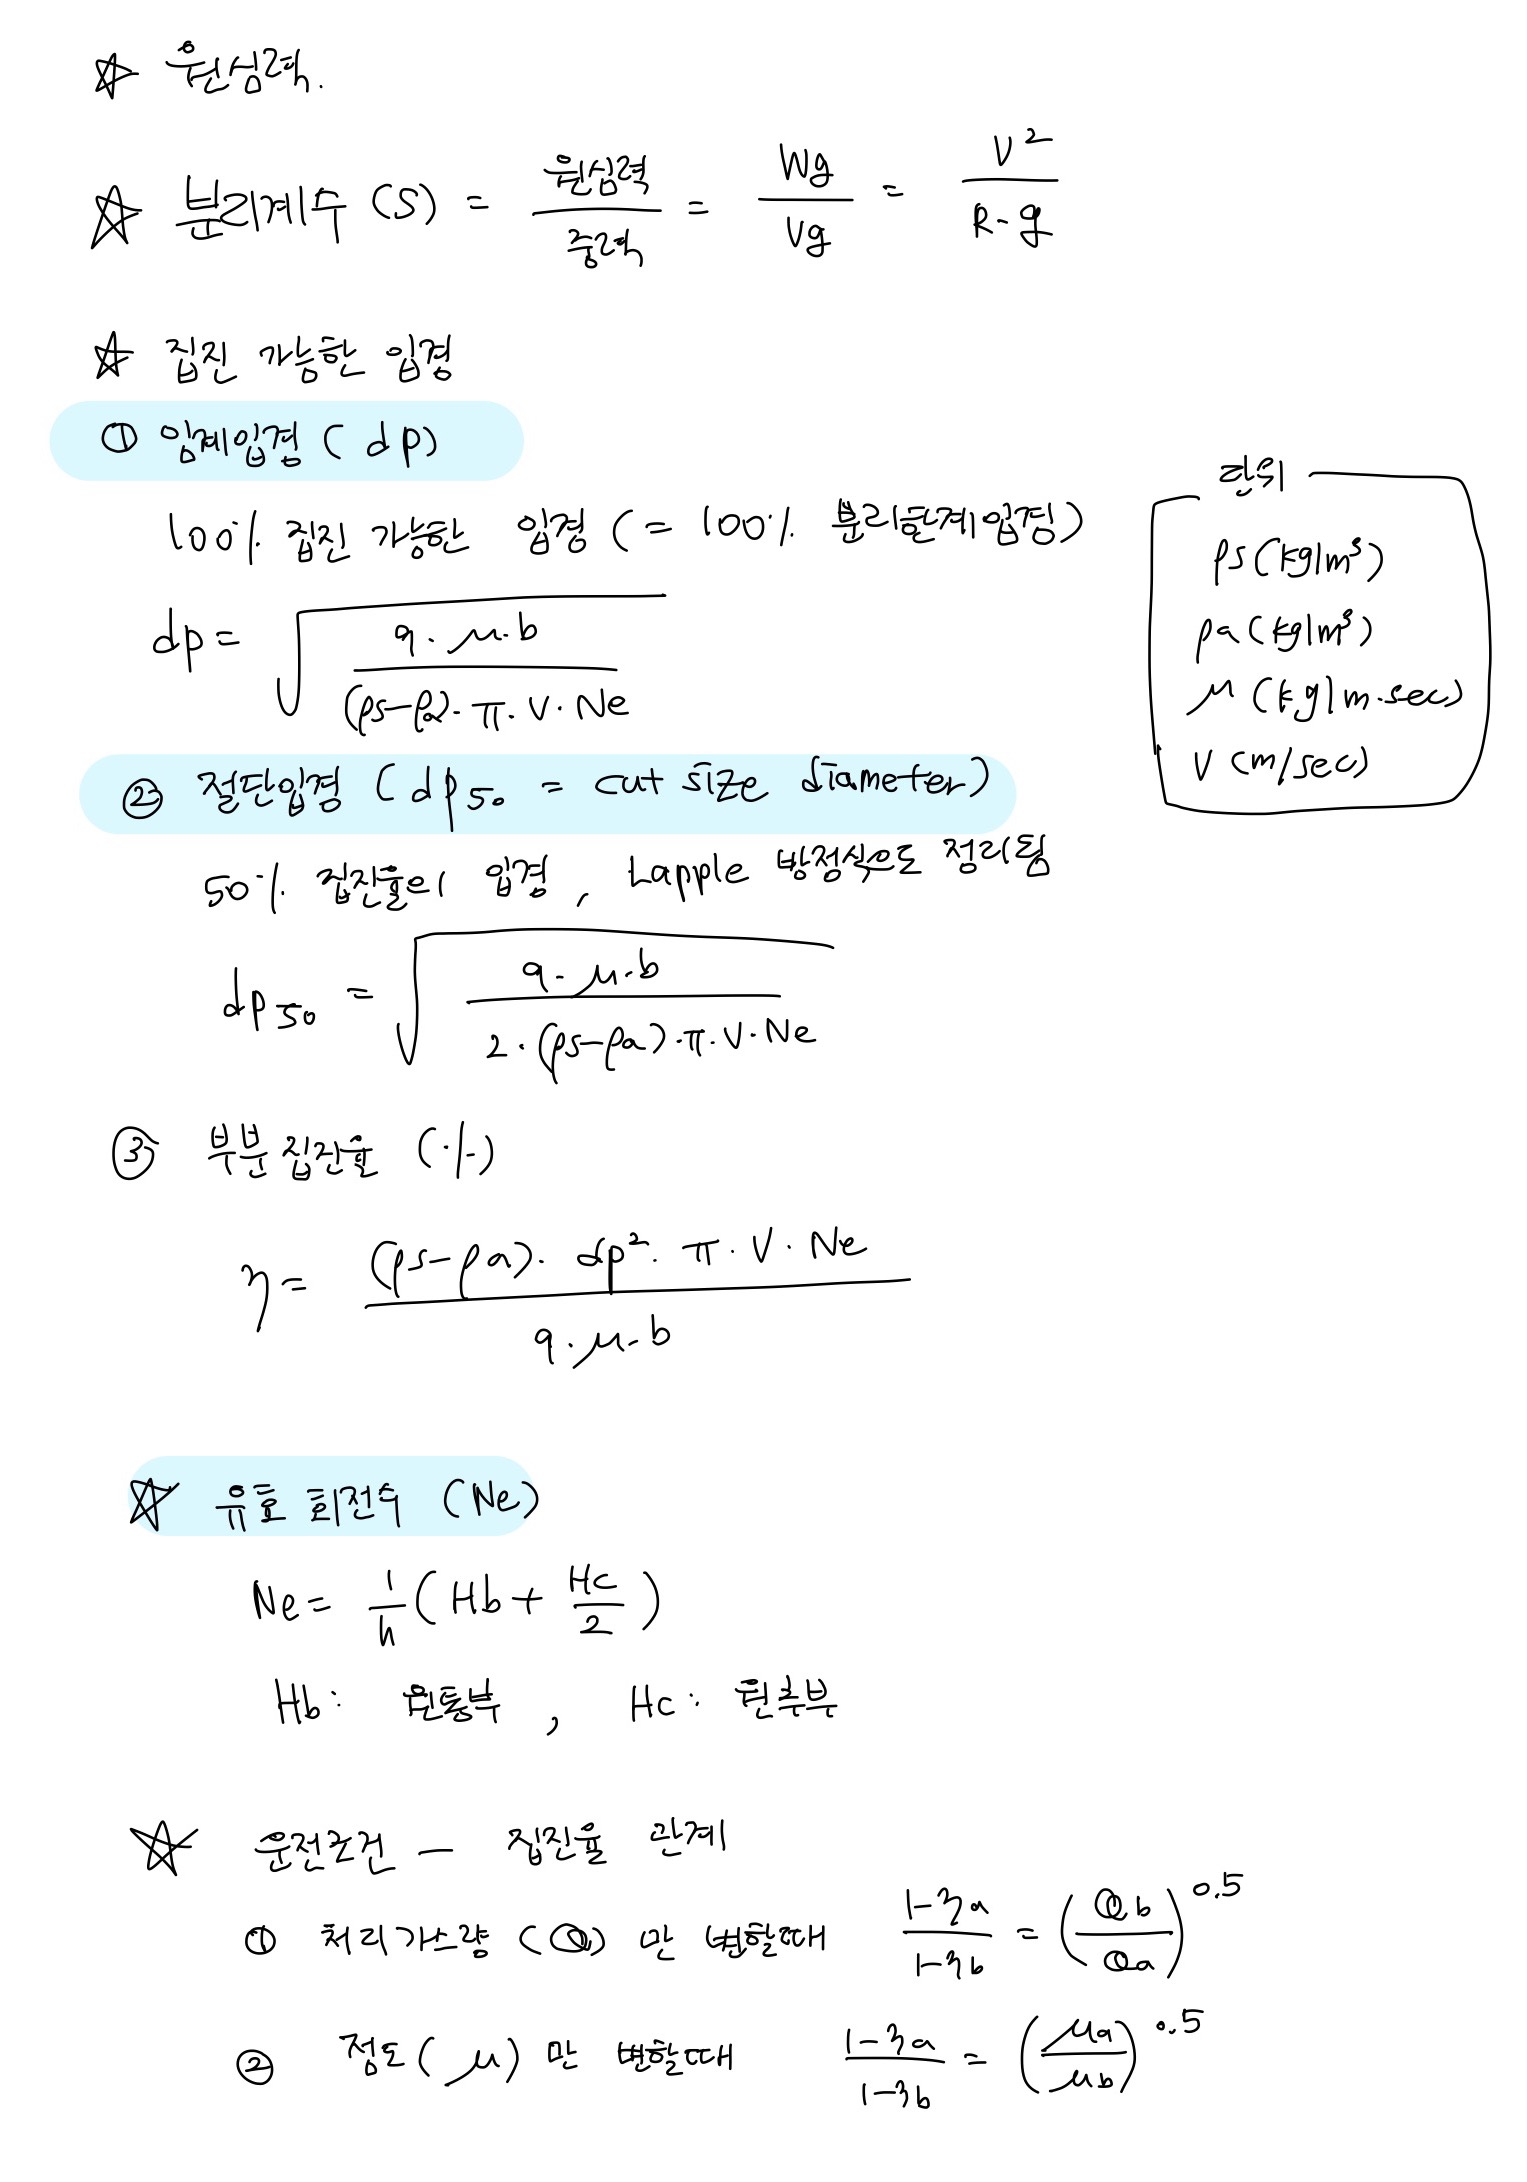 ☆ 원심력.
☆ 분리계수 (S) = 원심력/중력 = Wg/Vg = V²/R-g
☆ 집진 가능한 입경
① 임계입경 ( dp)
100% 집진 가능한 입경 (= 100% 분리한계입경)
dp = √(9·μ·b / (ρs-ρa)·π·V·Ne)
단위
ρs (kg/m³)
ρa (kg/m³)
μ (kg/m·sec)
V (m/sec)
② 절단입경 ( dp50 = cut size diameter)
50% 집진율의 입경 , Lapple 방정식으로 정리됨
dp50 = √(9·μ·b / 2·(ρs-ρa)·π·V·Ne)
③ 부분집진율 (%)
η = (ρs-ρa)·dp²·π·V·Ne / 9·μ·b
☆ 유효 회전수 (Ne)
Ne = 1/h (Hb + Hc/2)
Hb : 원통부 , Hc : 원추부
☆ 운전조건 — 집진율 관계
① 처리가스량 (Q) 만 변할때 1-ηa/1-ηb = (Qb/Qa)^0.5
② 점도(μ) 만 변할때 1-ηa/1-ηb = (μa/μb)^0.5